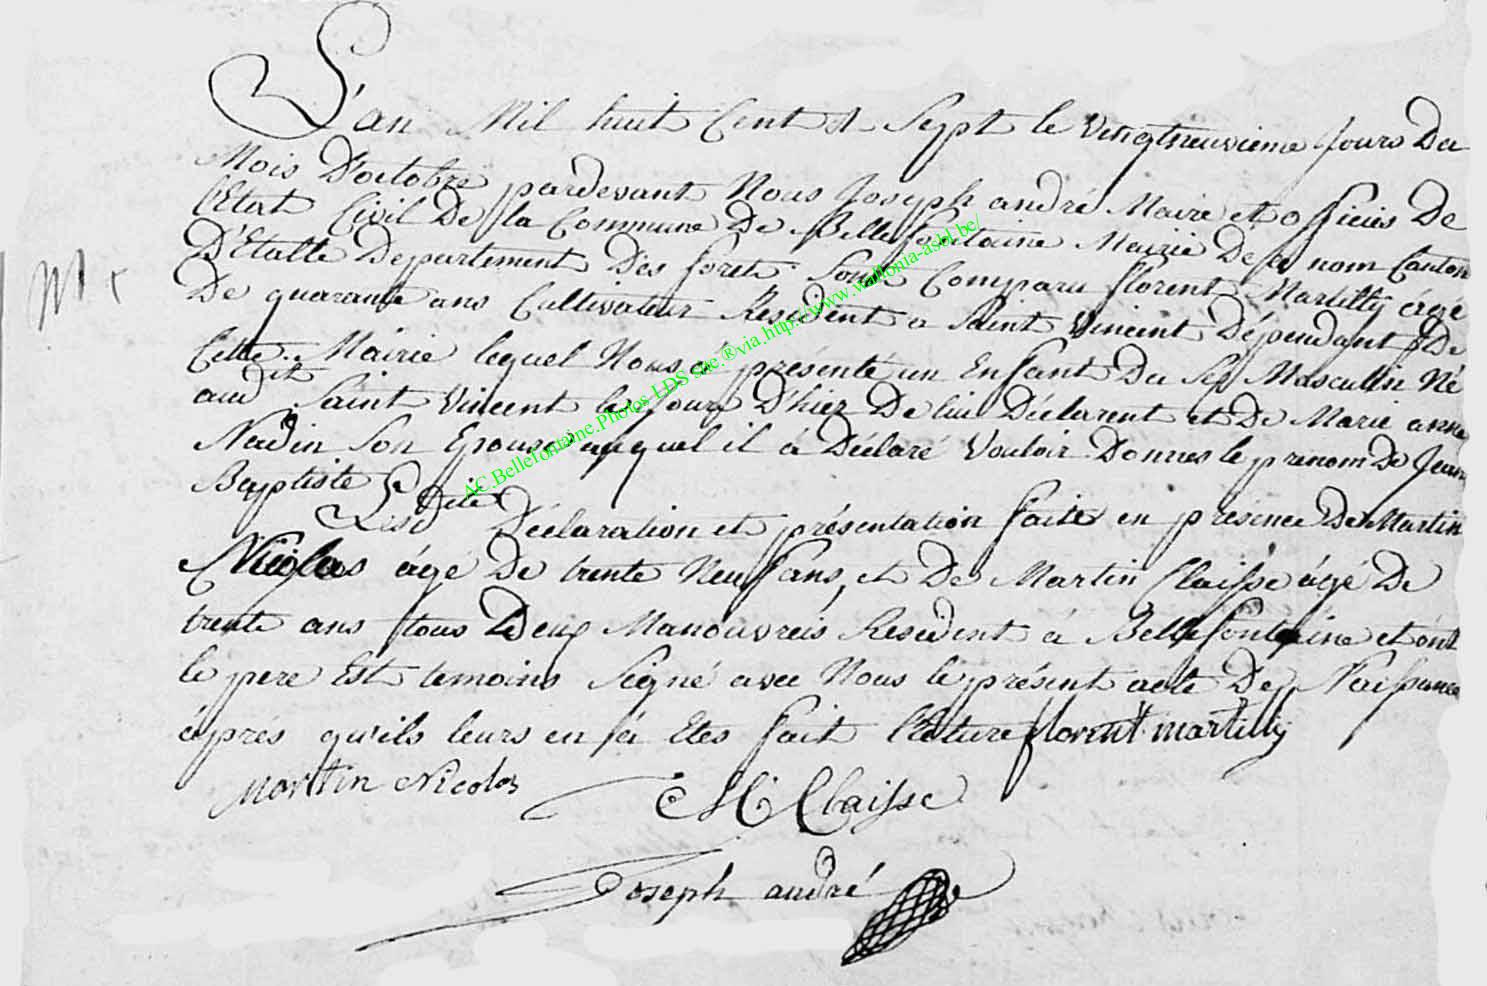 L'an Mil huit Cent st Sept le Vingtneuvieme Jours Du
Mois D'octobre pardevant Nous Joseph andré Maire et officiés De
l'Etat Civil De la Commune De Bellefontaine Mairie De ce nom Canton
D'Etalle Departement Des forets Sont Comparu florent Martilly égé
De quarante ans Cultivateur Résident a Saint Vincent Dépendant De
Cette Mairie lequel Nous a présenté un Enfant Du Sex Masculin Né
audit Saint Vincent le Jour D'hier De lui Déclarent et De Marie anne
Nadin Son Epouse auquel il á Déclaré Vouloir Donner le prenom De Jean
Baptiste
Lesdite Déclaration et présentation faite en présence De Martin
Nicolas ágé De trente Neuf ans, et De Martin Claisse ágé De
trente ans tous Deux Manouvreis Résident á Bellefontaine et ont
le pere Est temoins Signé avec Nous le présent acte De Naissance
áprés qu'ils leurs en á Etes fait l'Ecture florent martilly
Martin Nicolas M Claisse
Joseph andré
AC.Bellefontaine.Photos LDS sne.®via.http://www.wallonia-asbl.be/